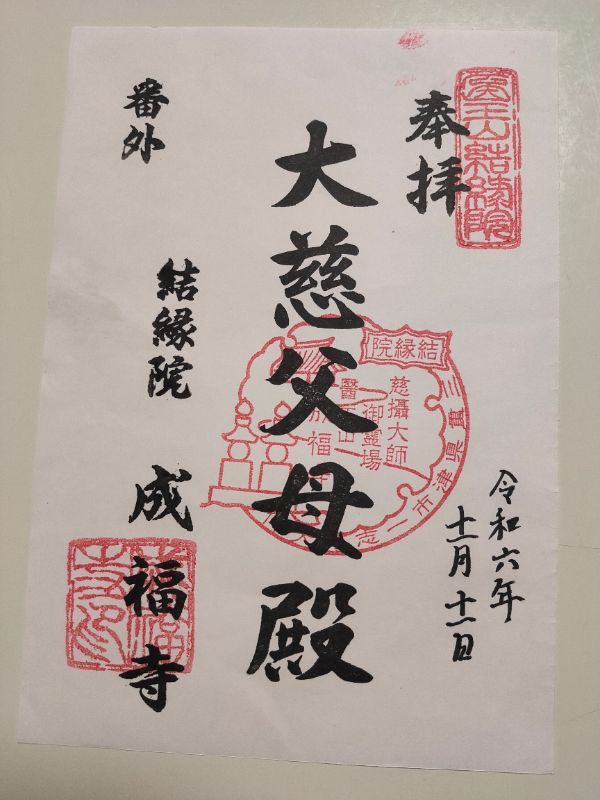 奉拝
醫王山結縁院
大慈父母殿
結縁院
慈攝大師
御霊場
醫王山
成福
三重県津市一志
令和六年
十一月十一日
番外
結縁院 成福寺